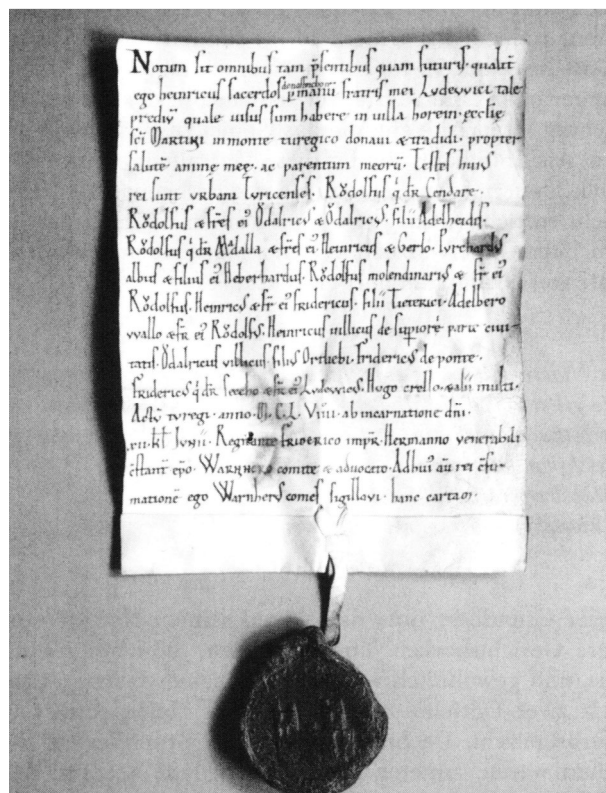 Notum sit omnibus tam p̄sentibus quam futuris · qualit̄
ego heinricus sacerdos p̱ manū fratris mei Lvdewici tale
prediv̄ quale visus sum habere in villa horein · eccl̄ię
sc̄i Martini in monte turegico donavi & tradidi · propter
salutē animę meę · ac parentum meorū · Testes huius
rei sunt vrbani Tvricenses · Rǒdolfus q̄ dr̄ Cendare ·
Rǒdolfus & fr̄es ei᾽ Ǒdalricvs & Ǒdalricvs · filii Adelheidis ·
Rǒdolfus q̄ dr̄ Madalla & fr̄es ei᾽ Heinricus & berlo · Pvrchardvs
albus & filius ei᾽ Heberhardus · Rǒdolfus molendinarivs & fr̄ ei᾽
Rǒdolfus · Heinricvs & fr̄ ei᾽ fridericus · filii Tieterici · Adelbero
vvallo & fr̄ ei᾽ Rǒdolfvs · Heinricus villicus de svpiorē parte civi-
tatis · Ǒdalricus villicus filivs Ortliebi · fridericvs de ponte ·
fridericvs q̄ dr̄ & fr̄ ei᾽ Lvdowicvs · Hvgo crello · & alii multi ·
Actv̄ tvregi · anno · M · C · L · Viiii · ab incarnatione dn̄i ·
kł Jvnii · Regnante friderico impr̄ · Hermanno venerabili
c̄stant̄ ep̄o · Warnhero comite & advocato · Ad huī aū rei c̄fir-
matione ego Warnhervs comes sigillavi · hanc cartam ·